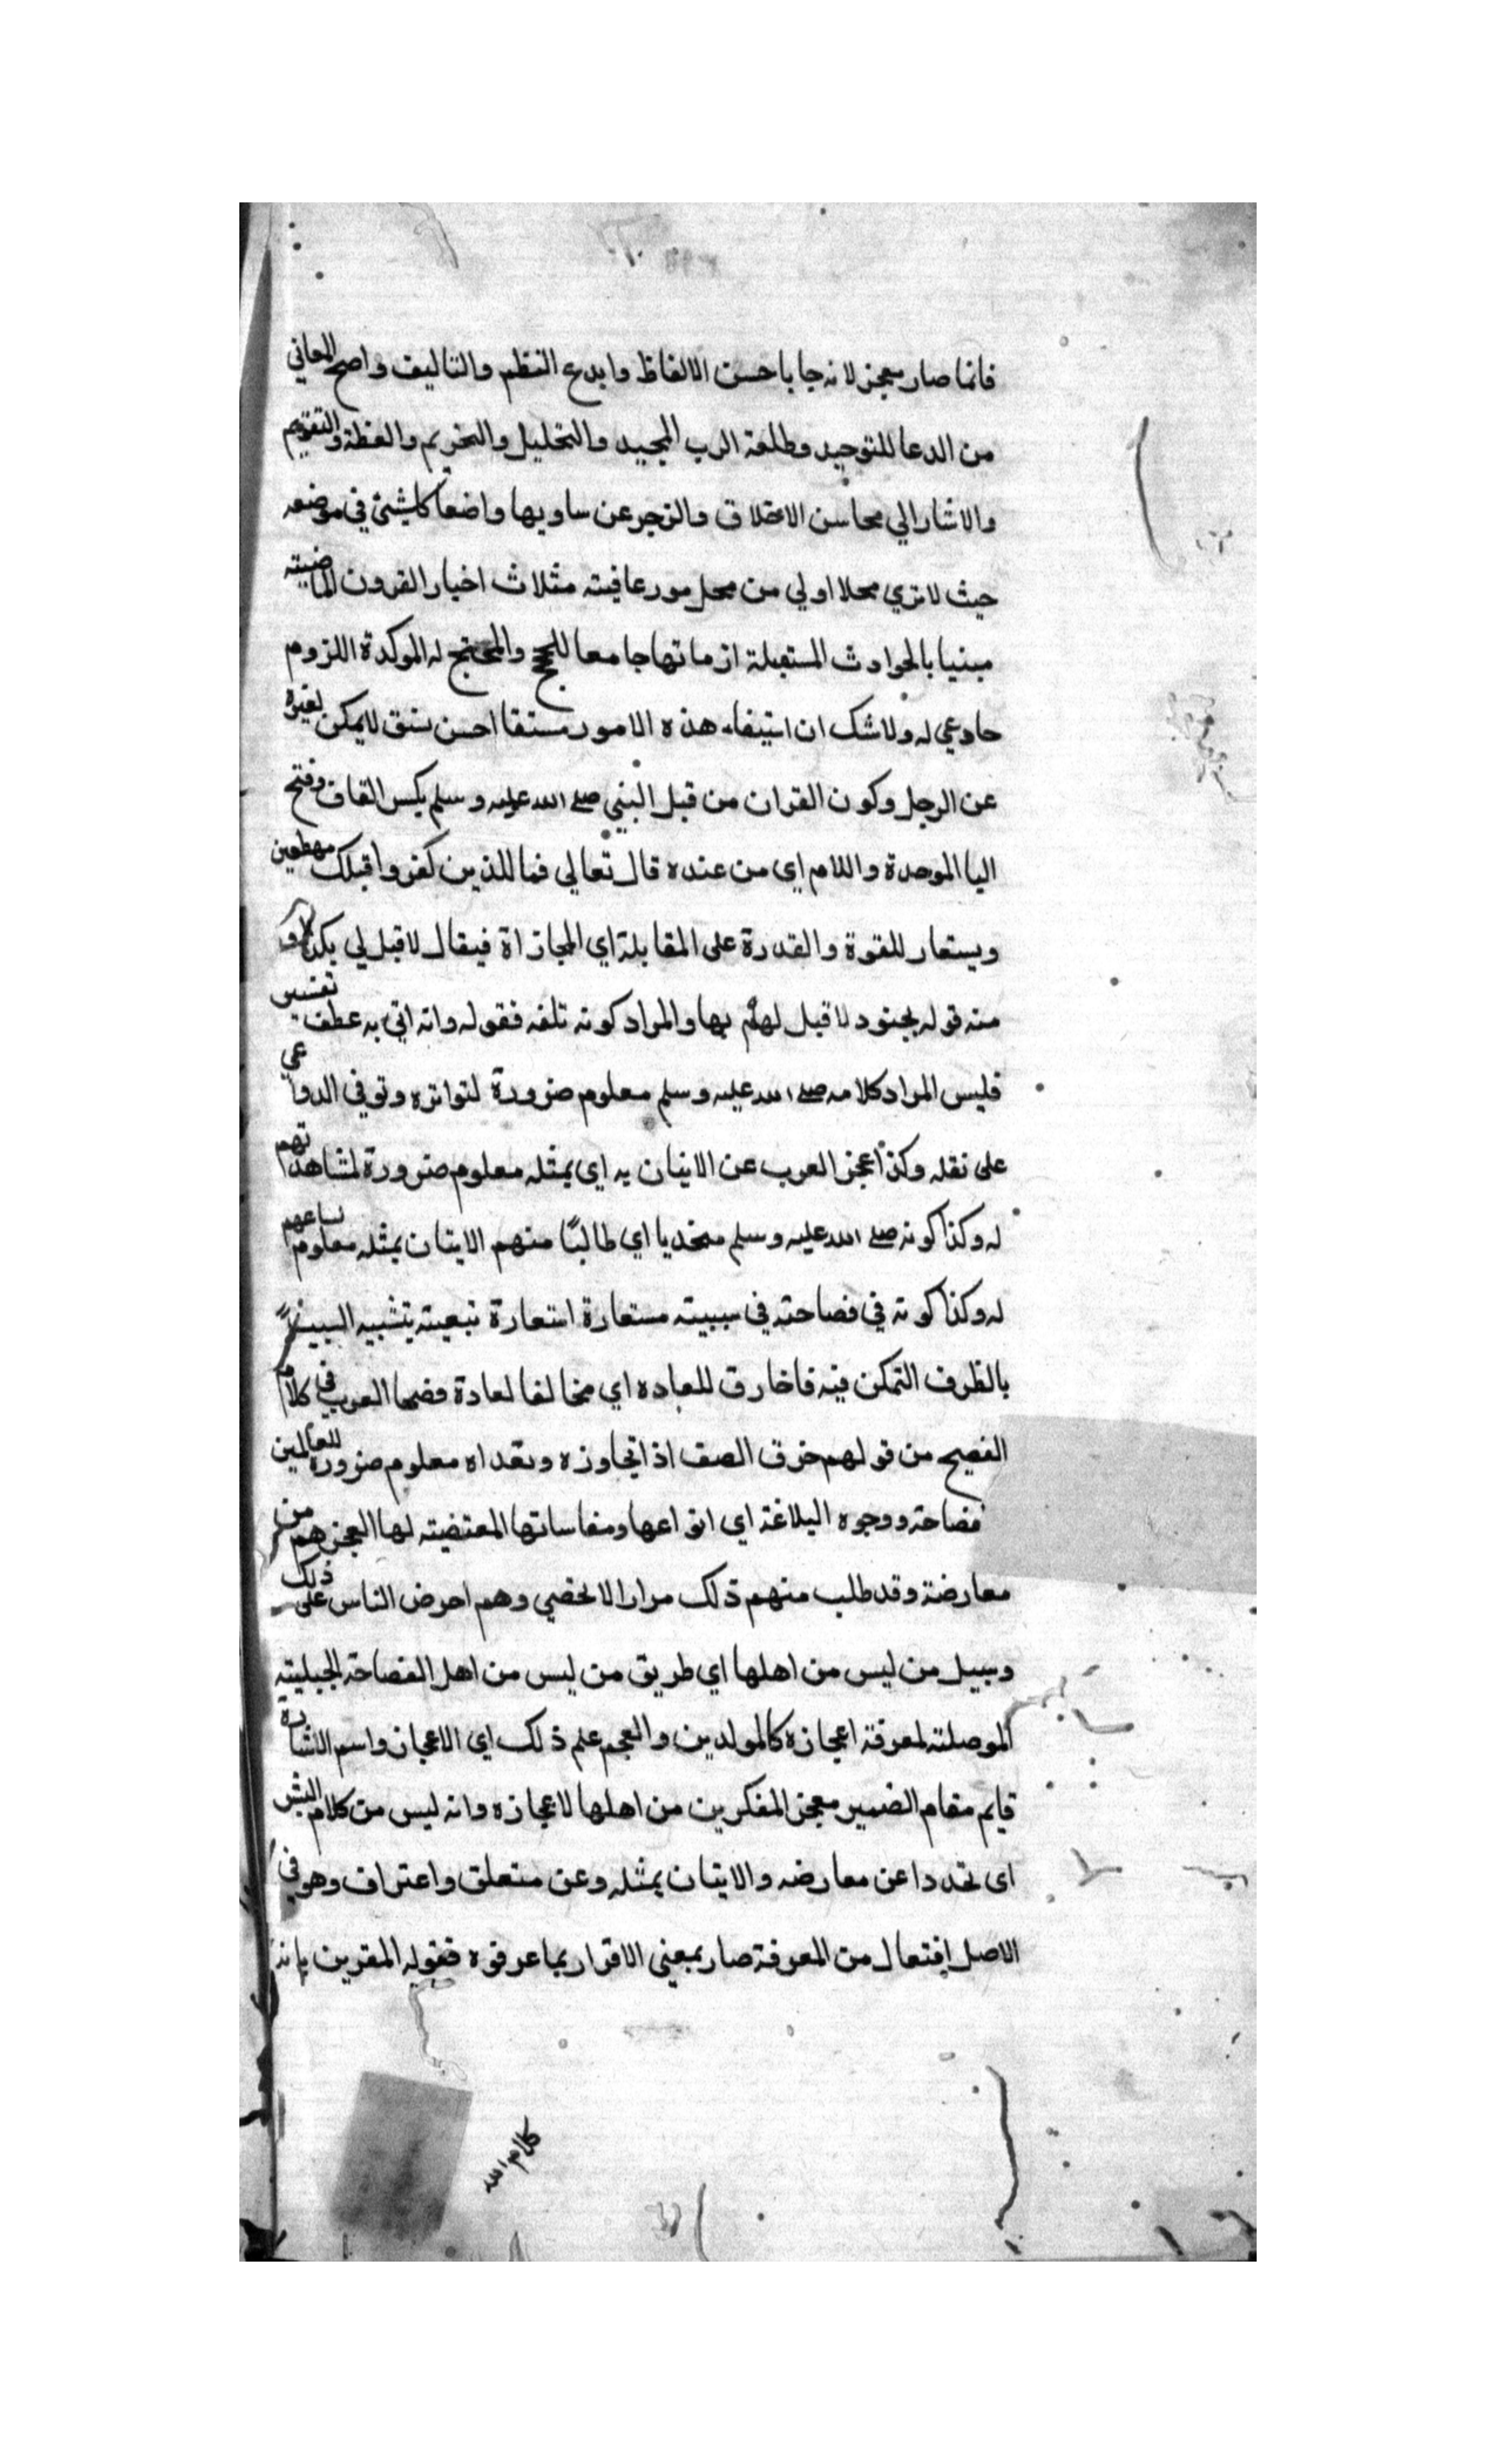 فانما صار معجز لانه جا باحسن الالفاظ وابدع النظم والتاليف واصح المعاني
من الدعا للتوحيد وطلعة الرب المجيد والتحليل والتحريم والعظة والتقويم
والاشار الي محاسن الاخلاق والزجر عن ساويها واضعا كل شئ في موضعه
حيث لا تري محلا اولي من محل مورعا فيته مثلاث اخبار القرون الماضيته
مبنيا بالحوادث المستقبلة ازمانها جامعا للحجج والمحتج له الموكدة اللزوم
حادعي له ولا شك ان استيفاء هذه الامور مستقا احسن نسق لا يمكن لغيره
عن الرجل وكون القران من قبل النبي صلے الله عليه وسلم بكسر القاف وفتح
اليا الموحدة واللام اى من عنده قال تعالي فما للذين كفروا قبلك مهطعين
ويستعار للقوة والقدرة على المقابلة اي المجازاة فيقال لا قبل لي بكذا و
منه قوله بجنود لا قبل لهم بها والمراد كونه تلفه فقوله وانه اتي به عطف تفسير
فليس المراد كلامه صلے الله عليه وسلم معلوم ضرورة لتواتره وتوفي الدواعي
على نقله وكذا عجز العرب عن الاتيان به اي بمثله معلوم ضرورة لمشاهداتهم
له وكذا كونه صلے الله عليه وسلم متحديا اي طالبًا منهم الايتان بمثله معلوم لساعهم
له وكذا كونه في فصاحته في سببيته مستعارة استعارة تبعيته بتشبيه السبب
بالظرف التمكن فيه فاخارق للعاده اي مخالفا لعادة فصحا العرب في كلام
الفصيح من قولهم خرق الصف اذا تجاوزه وتعداه معلوم ضرورة للعالمين
فصاحته ووجوه البلاغة اي انواعها ومفاساتها المعتضيته لها العجز هم من
معارضة وقد طلب منهم ذلك مرارا لا تحصي وهم احرص الناس على ذلك
وسبيل من ليس من اهلها اي طريق من ليس من اهل الفصاحة الجبليته
الموصلته لمعرفة اعجازه كالمولدين والعجم علم ذلك اي الاعجاز واسم الاشارة
قايم مقام الضمير معجز المفكرين من اهلها لاعجازه وانه ليس من كلام البشر
اى تحددا عن معارضه والايتان بمثله وعن متعلق واعتراف وهو في
الاصل افتعال من المعرفة صار بمعني الاقرار بما عرفوه فقوله المقرين بانه
كلام الله